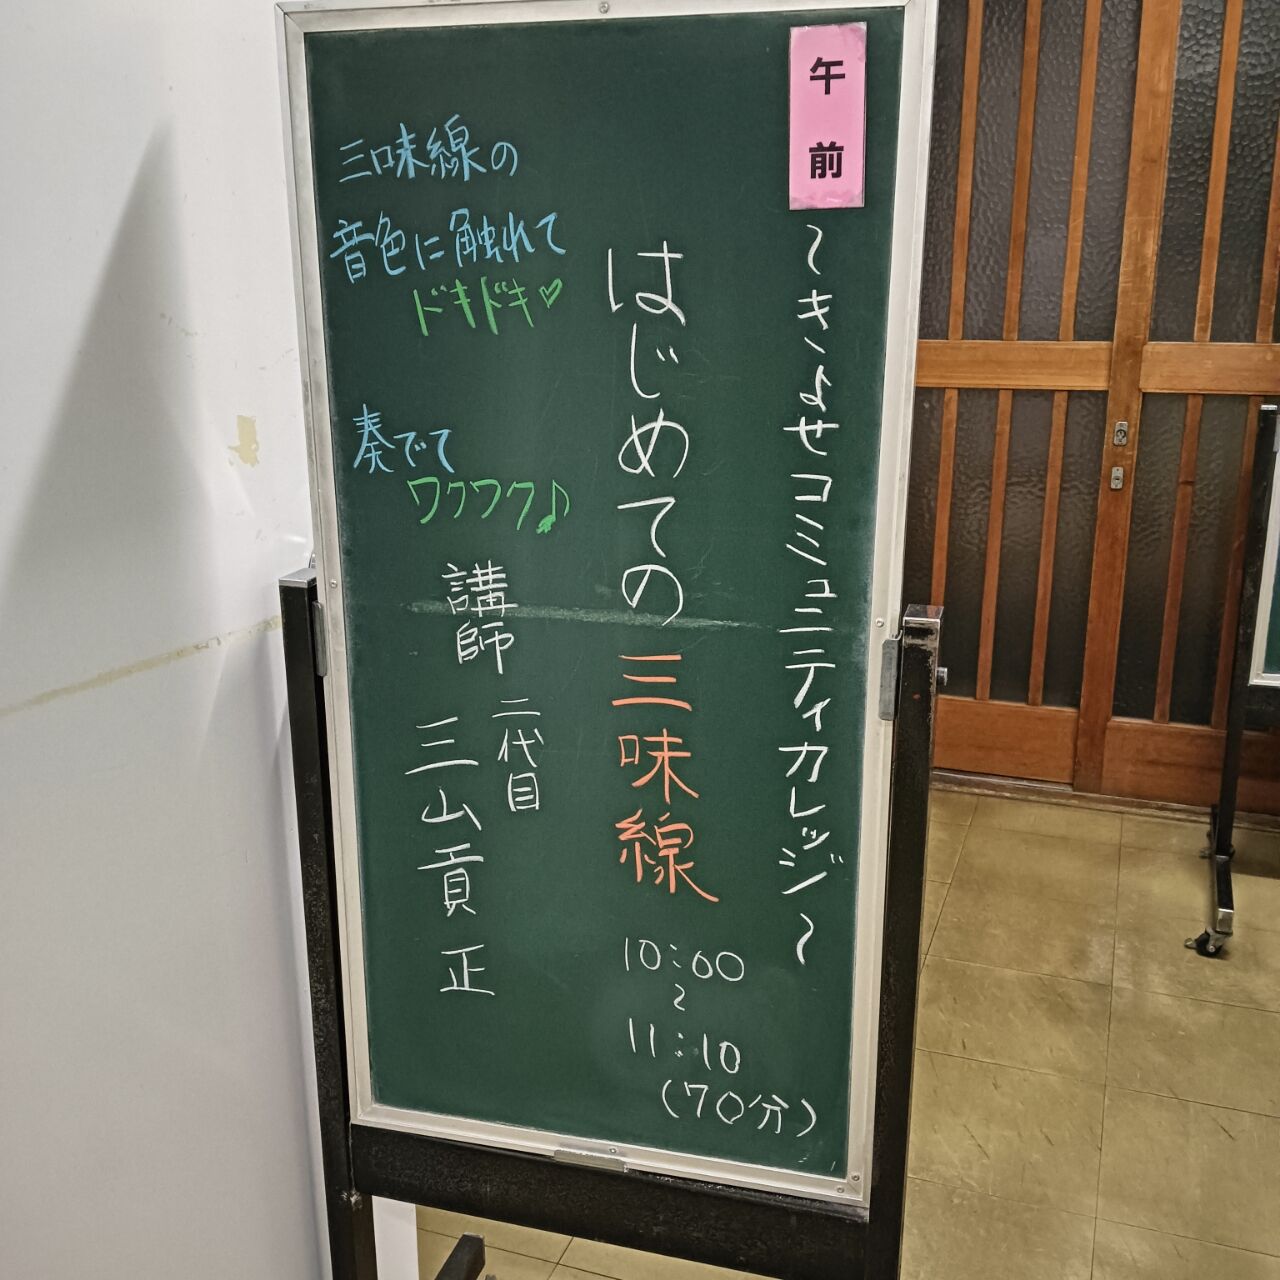 午前
～きよせコミュニティカレッジ～
はじめての三味線
10:00
～
11:10
(70分)
三味線の
音色に触れて
ドキドキ♡
奏でて
ワクワク♪
講師
二代目
三山貢正